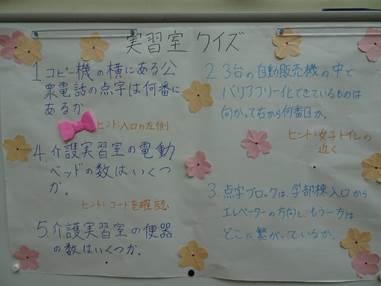 実習室クイズ
1.コピー機の横にある公
衆電話の点字は何番に
あるか
ヒント:入口の左側
4.介護実習室の電動
ベッドの数はいくつ
か。
ヒント:コードを確認
5.介護実習室の便器
の数はいくつか。
2.3台の自動販売機の中で
バリアフリー化できているものは
向かって右から何番目か。
ヒント:女子トイレの
近く
3.点字ブロックは、学部棟入口から
エレベーターの方向と、もう一方は
どこに繋がっているか。